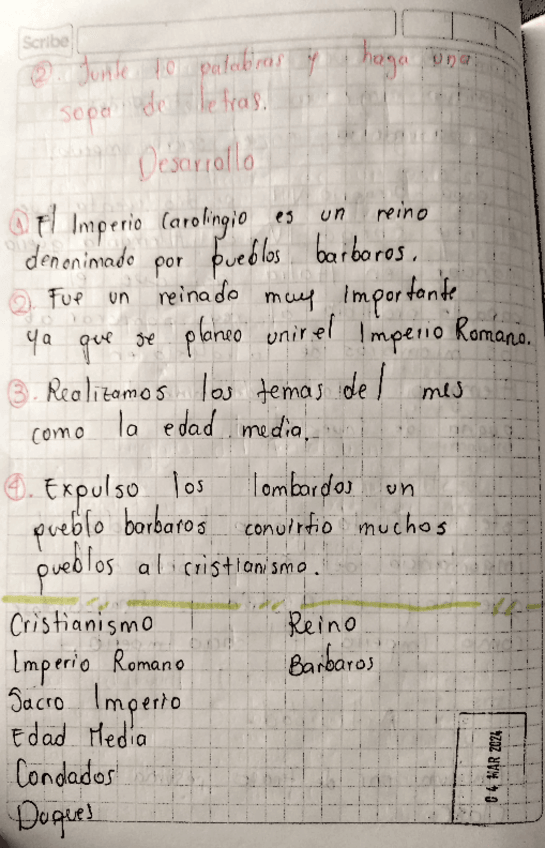 Scribe
②. Junte 10 palabras y haga una
sopa de letras.
Desarrollo
① El Imperio Carolingio es un reino
denonimado por pueblos barbaros.
②. Fue un reinado muy importante
ya que se planeo unir el Imperio Romano.
③. Realizamos los temas del mes
como la edad media.
④. Expulso los lombardos un
pueblo barbaros convirtio muchos
pueblos al cristianismo.
Cristianismo
Imperio Romano
Sacro Imperio
Edad Media
Condados
Duques
Reino
Barbaros
04 MAR 2024